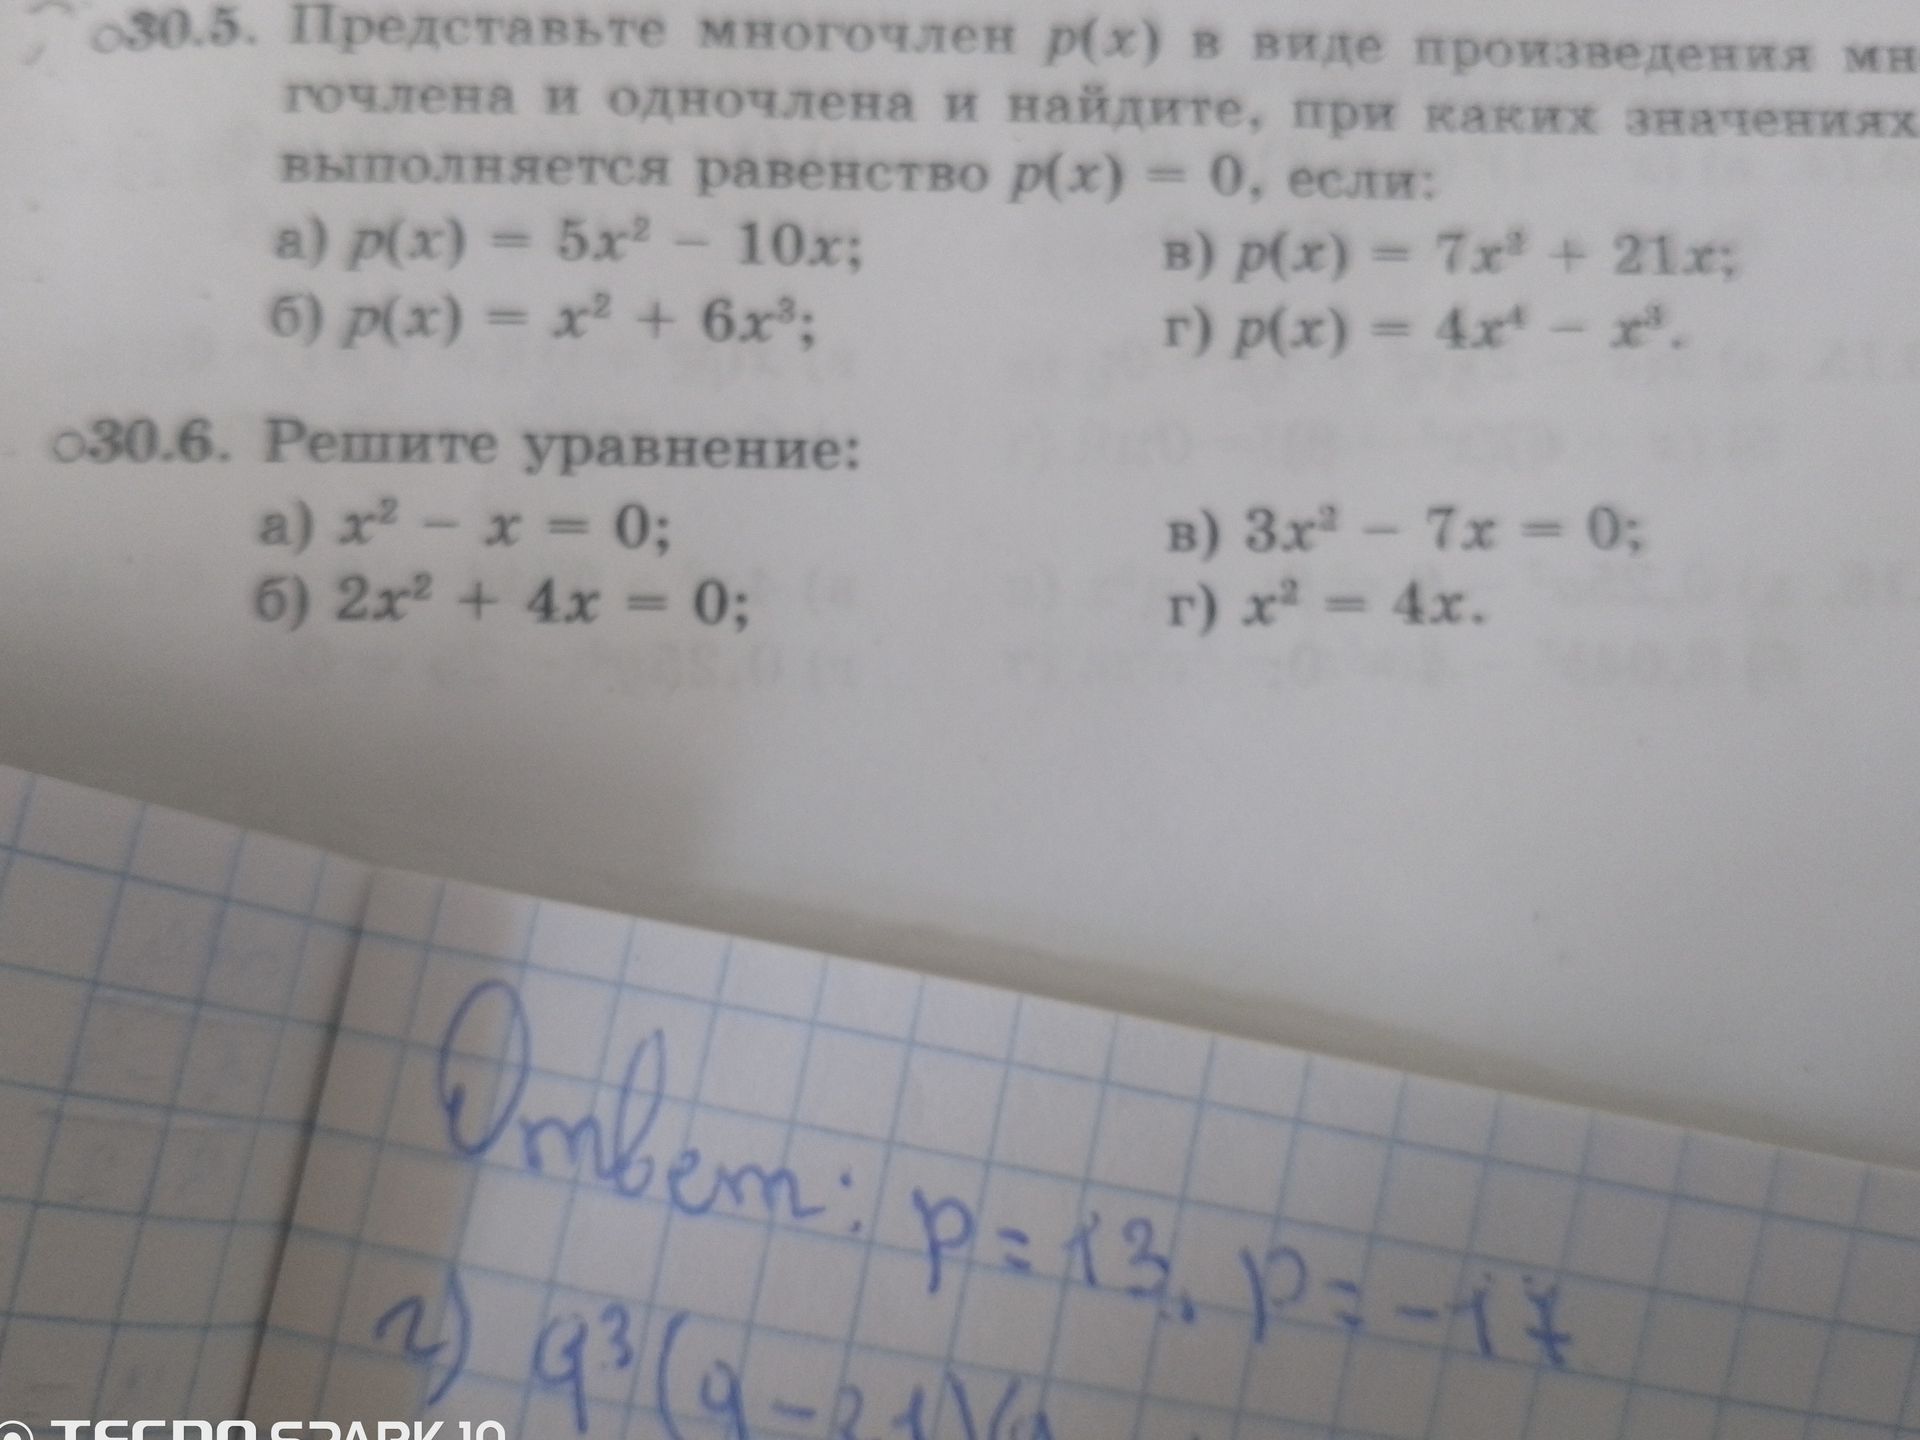 ○30.5. Представьте многочлен p(x) в виде произведения мн
гочлена и одночлена и найдите, при каких значениях
выполняется равенство p(x) = 0, если:
а) p(x) = 5x² − 10x; в) p(x) = 7x² + 21x;
б) p(x) = x² + 6x³; г) p(x) = 4x⁴ − x³.
○30.6. Решите уравнение:
а) x² − x = 0; в) 3x² − 7x = 0;
б) 2x² + 4x = 0; г) x² = 4x.
Ответ: p = 13, p = −17
г) q³(q − 21)(q
TECNO SPARK 10